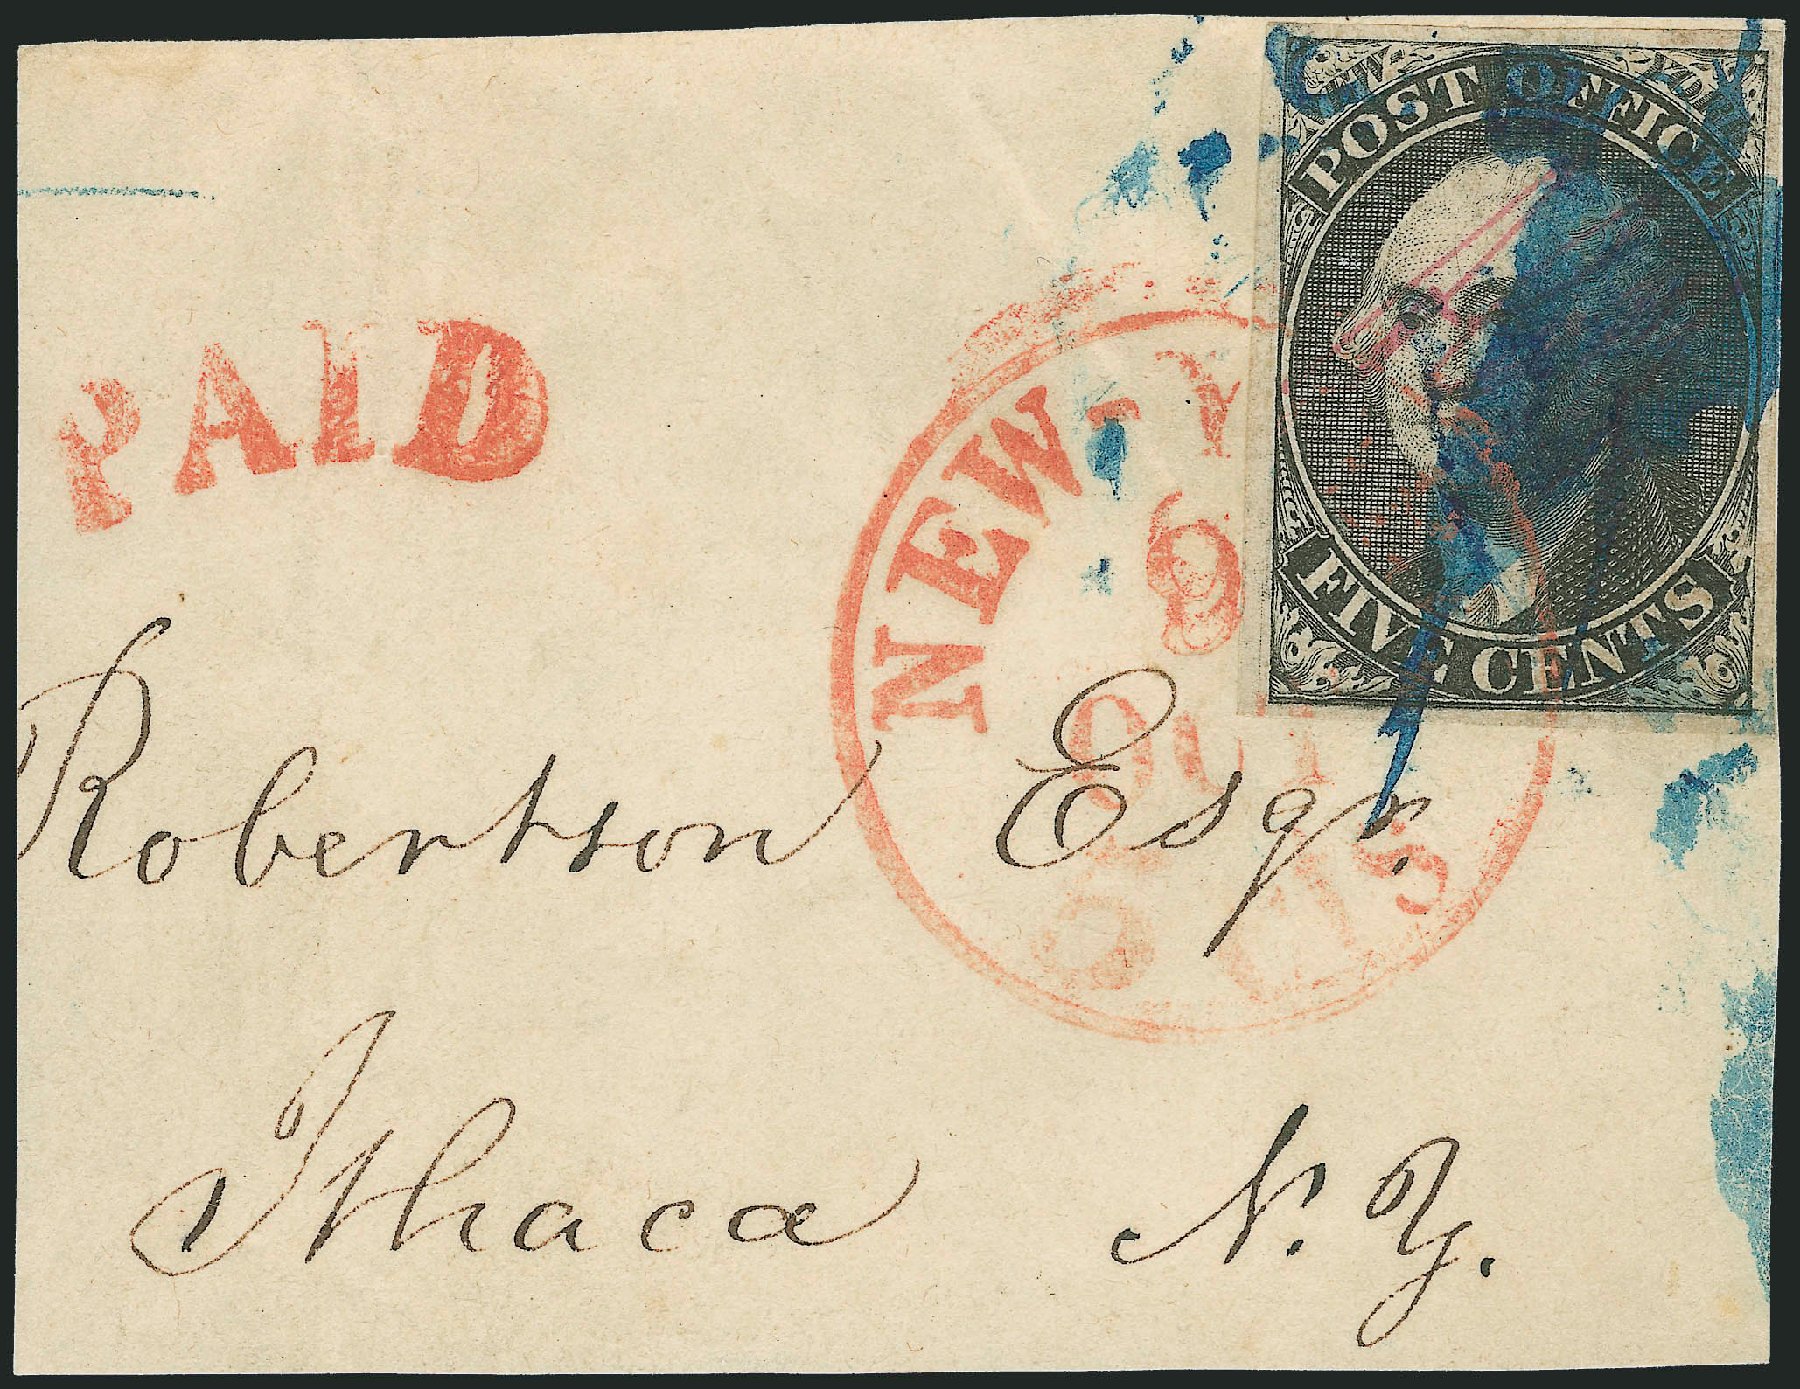 NEW YORK
POST OFFICE
FIVE CENTS
PAID
NEW-Y
OCT
5 Cts
Robertson Esqr.
Ithaca N.Y.